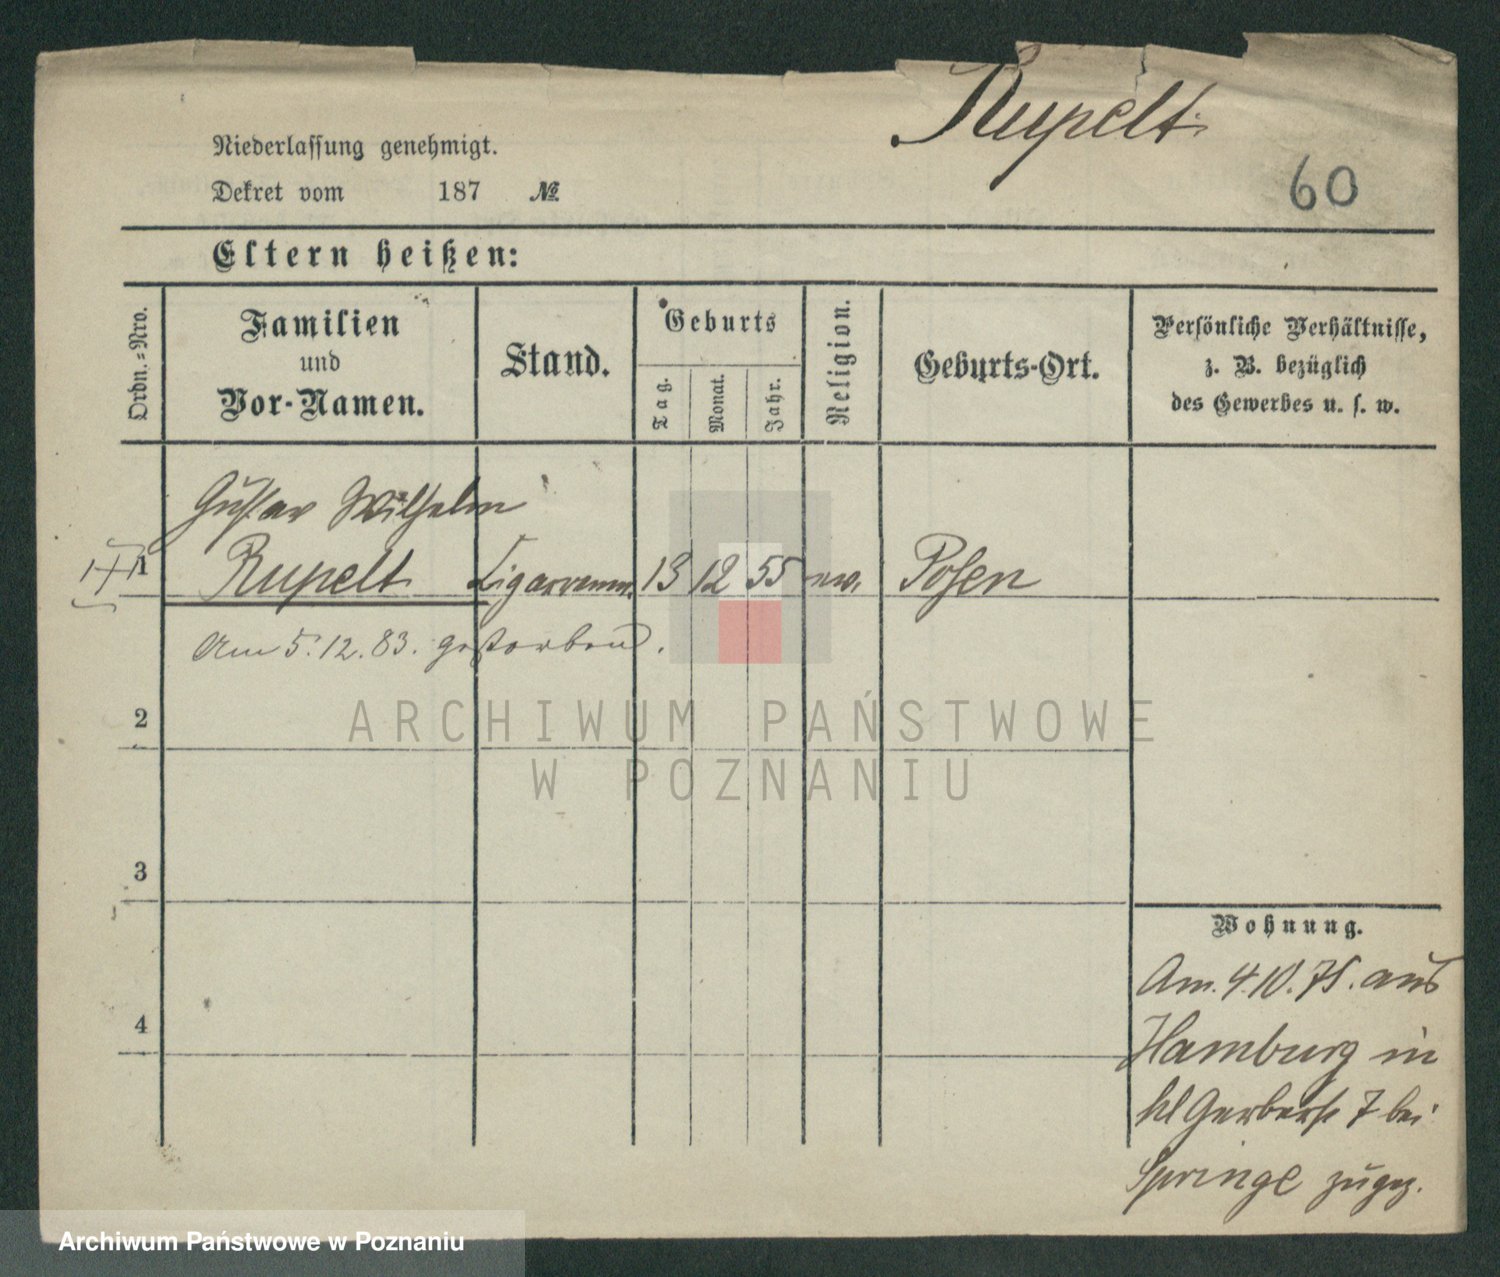 Rupelt
60
Niederlassung genehmigt.
Dekret vom 187 №
Eltern heißen:
Ordn.-Nro.
Familien
und
Vor-Namen.
Stand.
Geburts
Tag.
Monat.
Jahr.
Religion.
Geburts-Ort.
Persönliche Verhältnisse,
z. B. bezüglich
des Gewerbes u. s. w.
Gustav Wilhelm
1 Rupelt 13 12 55 ev. Posen
Am 5.12.83. gestorben.
2
3
4
Wohnung.
Am. 4.10.75. aus
Hamburg in
kl Gerberstr 7 bei
Springe zugez.
ARCHIWUM PAŃSTWOWE
W POZNANIU
Archiwum Państwowe w Poznaniu